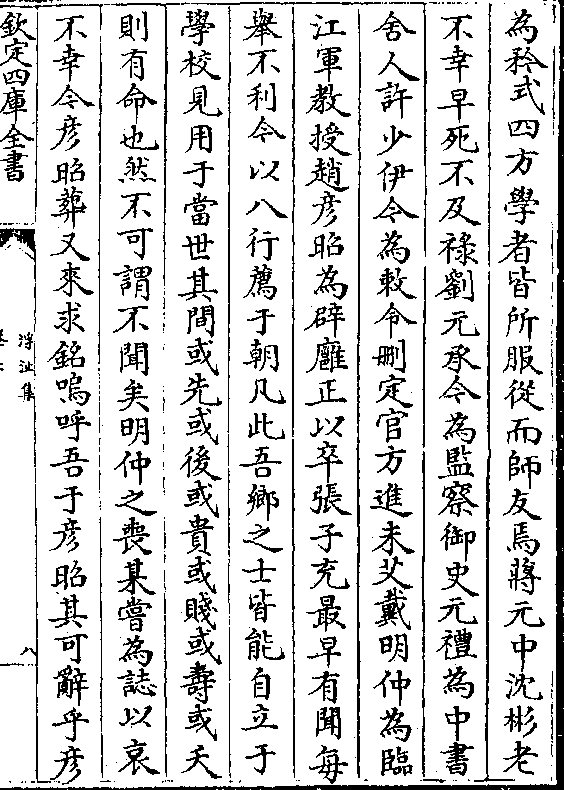 為矜式四方學者皆所服從而師友焉蔣元中沈彬老
不幸早死不及祿劉元承今為監察御史元禮為中書
舍人許少伊今為敕令刪定官方進未艾戴明仲為臨
江軍教授趙彦昭為辟廱正以卒張子充最早有聞每
舉不利今以八行薦于朝凡此吾鄉之士皆能自立于
學校見用于當世其間或先或後或貴或賤或壽或夭
則有命也然不可謂不聞矣明仲之喪某嘗為誌以哀
不幸今彦昭葬又來求銘嗚呼吾于彦昭其可辭乎彦
欽定四庫全書
浮沚集
八